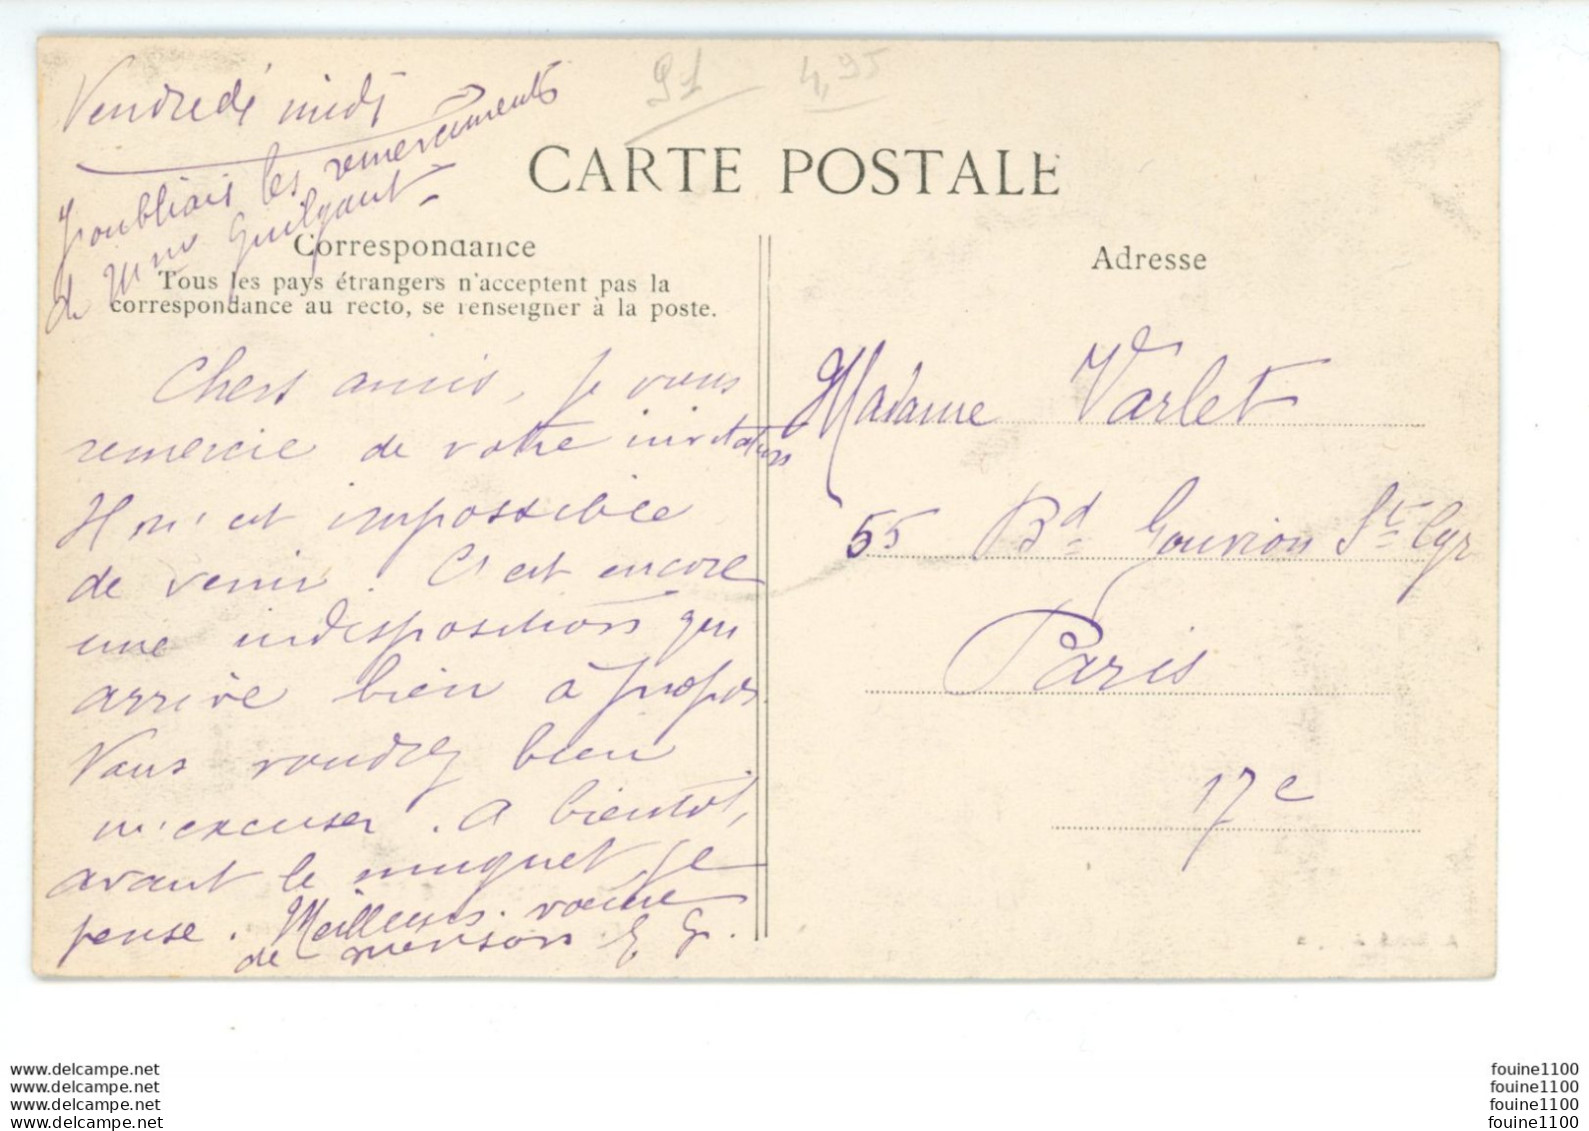 91 4,95
Vendredi midi
J'oubliais les remerciements
de Mme Guilgaut
CARTE POSTALE
Correspondance
Tous les pays étrangers n'acceptent pas la
correspondance au recto, se renseigner à la poste.
Chers amis, je vous
remercie de votre invitation
Il m'est impossible
de venir. C'est encore
une indisposition qui
arrive bien à propos.
Vous voudrez bien
m'excuser. A bientôt,
avant le muguet je
pense. Meilleurs
de E G.
Adresse
Madame Varlet
55 Bd Gouvion St Cyr
Paris
17e
www.delcampe.net
www.delcampe.net
www.delcampe.net
www.delcampe.net
fouine1100
fouine1100
fouine1100
fouine1100